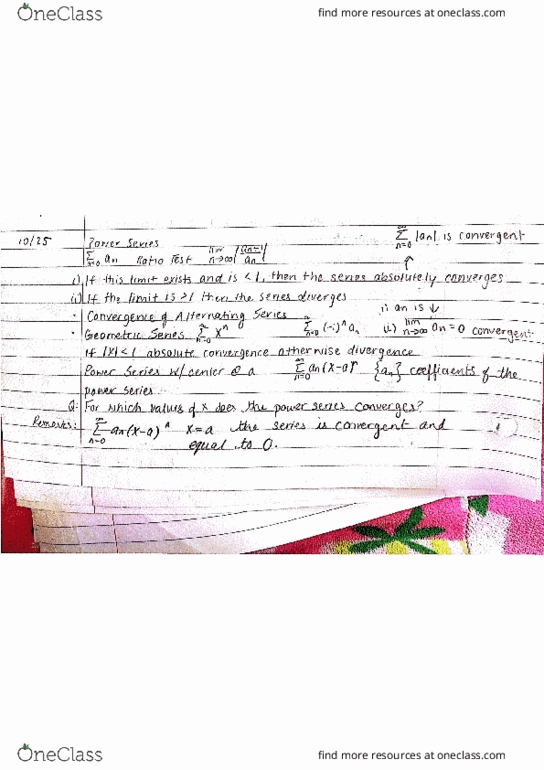 OneClass find more resources at oneclass.com
10/25 Power Series ∑_{n=0}^{∞} |an| is convergent
∑_{n=0}^{∞} an Ratio Test lim_{n→∞} |an+1/an| ↑
i) If this limit exists and is <1, then the series absolutely converges
ii) If the limit is >1 then the series diverges
· Convergence of Alternating Series ∑_{n=0}^{∞} (-1)^n an i) an is ↓
· Geometric Series ∑_{n=0}^{∞} x^n ii) lim_{n→∞} an = 0 convergent
If |x|<1 absolute convergence otherwise divergence
Power Series w/center @ a ∑_{n=0}^{∞} an(x-a)^n {an} coefficients of the
power series
Q: For which values of x does the power series converges?
Remarks: ∑_{n=0}^{∞} an(x-a)^n x=a the series is convergent and
equal to 0.
OneClass find more resources at oneclass.com